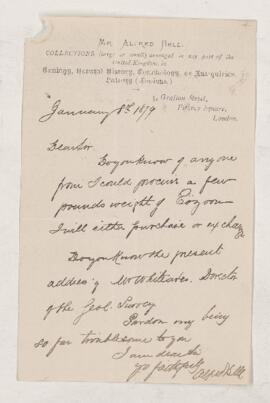 MR ALFRED BELL.
COLLECTIONS (large or small) arranged in any part of the
United Kingdom, in
Geology, Natural History, Conchology, or Antiquities,
Pottery
Grafton Street,
Fitzroy Square,
London.
January 8th 1879
Dear Sir
Do you know of anyone
from I could procure a few
pounds weight of Eozoon
I will either purchase or exchange
Do you know the present
address of Mr Whiteaves. Director
of the Geol. Survey
Pardon my being
so far troublesome to you
I am dear Sir
yrs faithfully
Alfred Bell